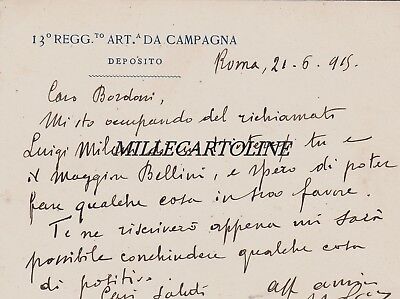 13º REGG.TO ART.A DA CAMPAGNA
DEPOSITO
Roma, 21.6.915
Caro Bordoni,
Mi sto occupando del richiamato
Luigi
MILLECARTOLINE
tu e
il Maggior Bellini, e spero di poter
fare qualche cosa in suo favore.
Te ne riscriverò appena mi sarà
possibile conchiudere qualche cosa
di positivo.
Cari saluti
aff amico